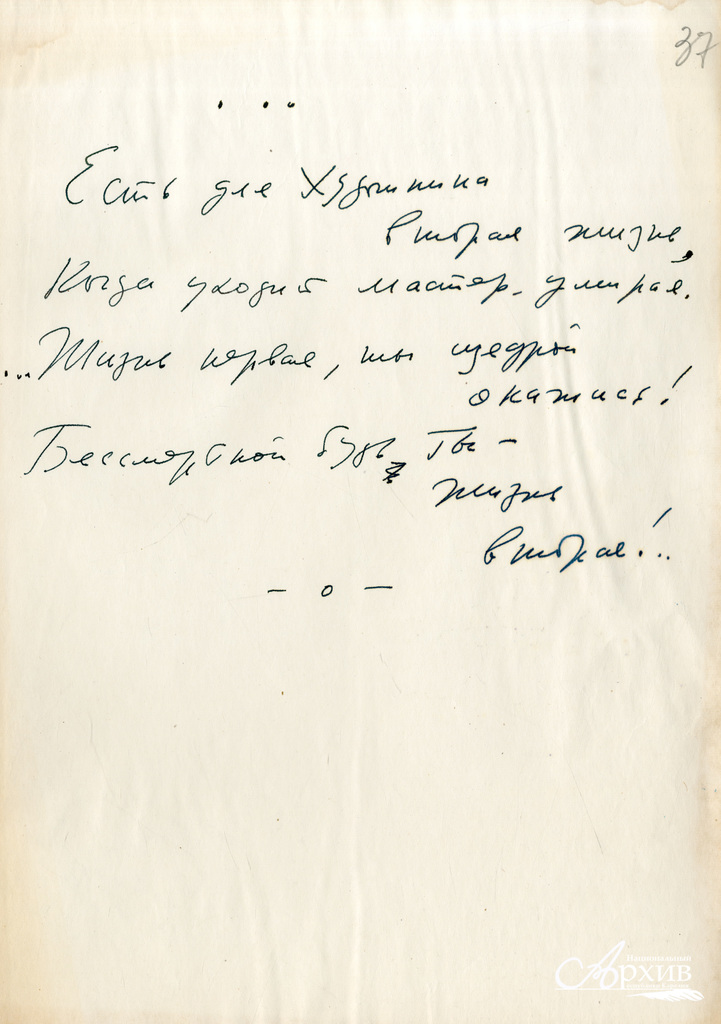 37
. . .
Есть для Художника
вторая жизнь,
Когда уходит мастер, умирая.
...Жизнь первая, ты щедрой
окажись!
Бессмертной будь, Ты –
жизнь
вторая!..
– о –
Национальный
Архив